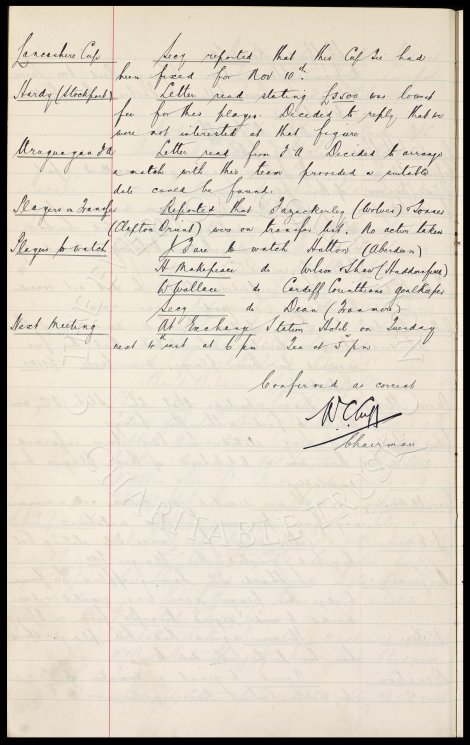 Lancashire Cup Secy reported that this Cup Tie had
been fixed for Nov 10th.
Hardy (Stockport) Letter read stating £3500 was lowest
fee for this player. Decided to reply that we
were not interested at that figure
Uruguayan F.A Letter read from F.A. Decided to arrange
a match with this team provided a suitable
date could be found.
Players on Transfer Reported that Fazackerley (Wolves) &
(Clapton Orient) were on transfer list. No action taken
Players to watch J Fare to watch Hutton (Aberdeen)
H Makepeace do Wilson & Shaw (Huddersfield)
W Wallace do Cardiff Corinthians goalkeeper
Secy do Dean (Tranmere)
Next Meeting At Exchange Station Hotel on Tuesday
next inst at 6 pm Tea at 5 pm
Confirmed as correct
W.C. Cuff
Chairman
CHARITABLE TRUST